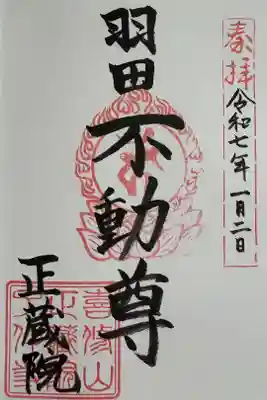 奉拝
令和七年一月二日
羽田不動尊
正蔵院